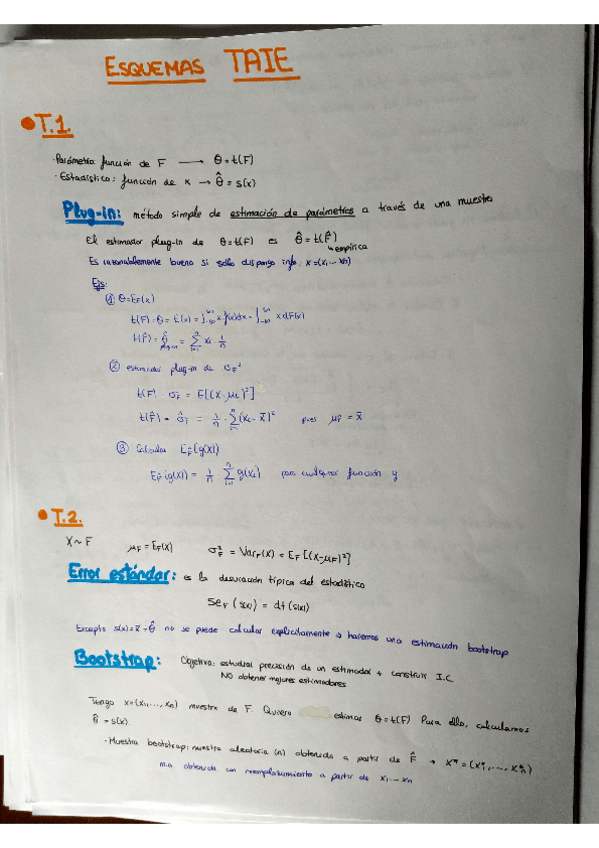 ESQUEMAS TAIE
• T.1.
· Parámetro: función de F → θ = t(F)
· Estadístico: función de x → θ̂ = s(x)
Plug-in: método simple de estimación de parámetros a través de una muestra
El estimador plug-in de θ = t(F) es θ̂ = t(F̂)
empírica
Es razonablemente bueno si solo dispongo info. x = (x₁ ... xₙ)
Ejs:
① θ = E_F(x)
t(F) = θ = E(x) = ∫_{-∞}^{∞} x f(x)dx = ∫_{-∞}^{∞} x dF(x)
t(F̂) = θ̂ plug-in = Σ_{i=1}^{n} xᵢ 1/n
② estimador plug-in de σ_F²
t(F) = σ_F = E[(x-μ_F)²]
t(F̂) = σ̂_F = 1/n · Σ_{i=1}^{n} (xᵢ - x̄)² pues μ_F̂ = x̄
③ Calcular E_F̂(g(x))
E_F̂(g(x)) = 1/n · Σ_{i=1}^{n} g(xᵢ) para cualquier función y
• T.2.
X ~ F μ_F = E_F(X) σ²_F = Var_F(x) = E_F[(x-μ_F)²]
Error estándar: es la desviación típica del estadístico
Se_F (s(x)) = dt (s(x))
Excepto s(x) = x̄ = θ̂ no se puede calcular explícitamente → haremos una estimación bootstrap
Bootstrap: Objetivo: estudiar precisión de un estimador + construir I.C
NO obtener mejores estimadores
Tengo x = (x₁, ..., xₙ) muestra de F. Quiero estimar θ = t(F). Para ello, calculamos
θ̂ = s(x).
· Muestra bootstrap: muestra aleatoria (n) obtenida a partir de F̂ → X* = (X*₁, ..., X*ₙ)
m.a obtenida con reemplazamiento a partir de x₁ ... xₙ